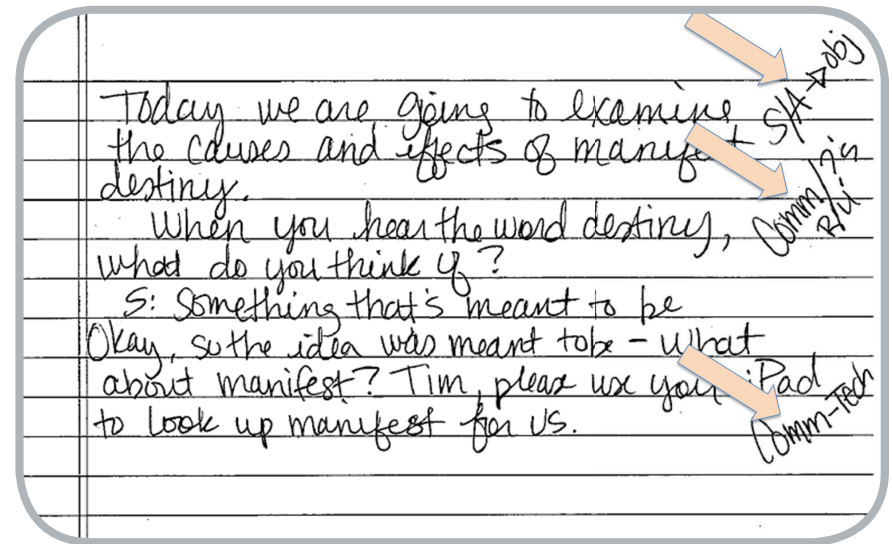 Today we are going to examine
the causes and effects of manifest
destiny.
When you hear the word destiny,
what do you think of?
S: Something that's meant to be
Okay, so the idea was meant to be - What
about manifest? Tim, please use your iPad
to look up manifest for us.
S/A → obj
Comm/?'s
B/U
Comm-Tech